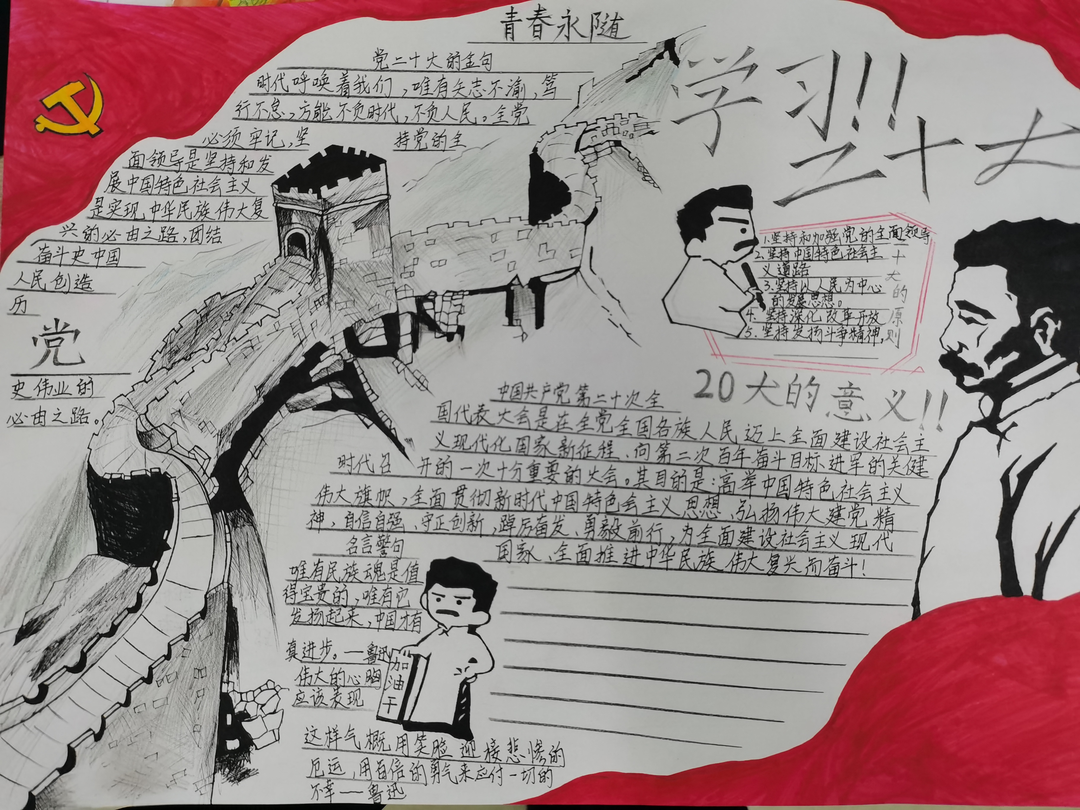 青春永随
党二十大的金句
时代呼唤着我们，唯有矢志不渝，笃
行不怠，方能不负时代，不负人民。全党
必须牢记，坚 持党的全
面领导是坚持和发
展中国特色社会主义
是实现中华民族伟大复
兴的必由之路，团结
奋斗史中国
人民创造
历
党
史伟业的
必由之路。
学习!!
二十大
1.坚持和加强党的全面领导
2.坚持中国特色社会主
义道路
3.坚持以人民为中心
的发展思想。
4.坚持深化改革开放
5.坚持发扬斗争精神，
十大的原则
20大的意义!!
中国共产党第二十次全
国代表大会是在全党全国各族人民迈上全面建设社会主
义现代化国家新征程、向第二次百年奋斗目标进军的关健
时代召 开的一次十分重要的大会。其目的是：高举中国特色社会主义
伟大旗帜，全面贯彻新时代中国特色会主义思想，弘扬伟大建党精
神，自信自强、守正创新，踔厉奋发、勇毅前行，为全面建设社会主义现代
国家、全面推进中华民族伟大复兴而奋斗！
名言警句
唯有民族魂是值
得宝贵的，唯有它
发扬起来，中国才有
真进步。——鲁迅
加油干
伟大的心胸
应该表现
这样气概用笑脸迎接悲惨的
厄运，用百倍的勇气来应付一切的
不幸——鲁迅